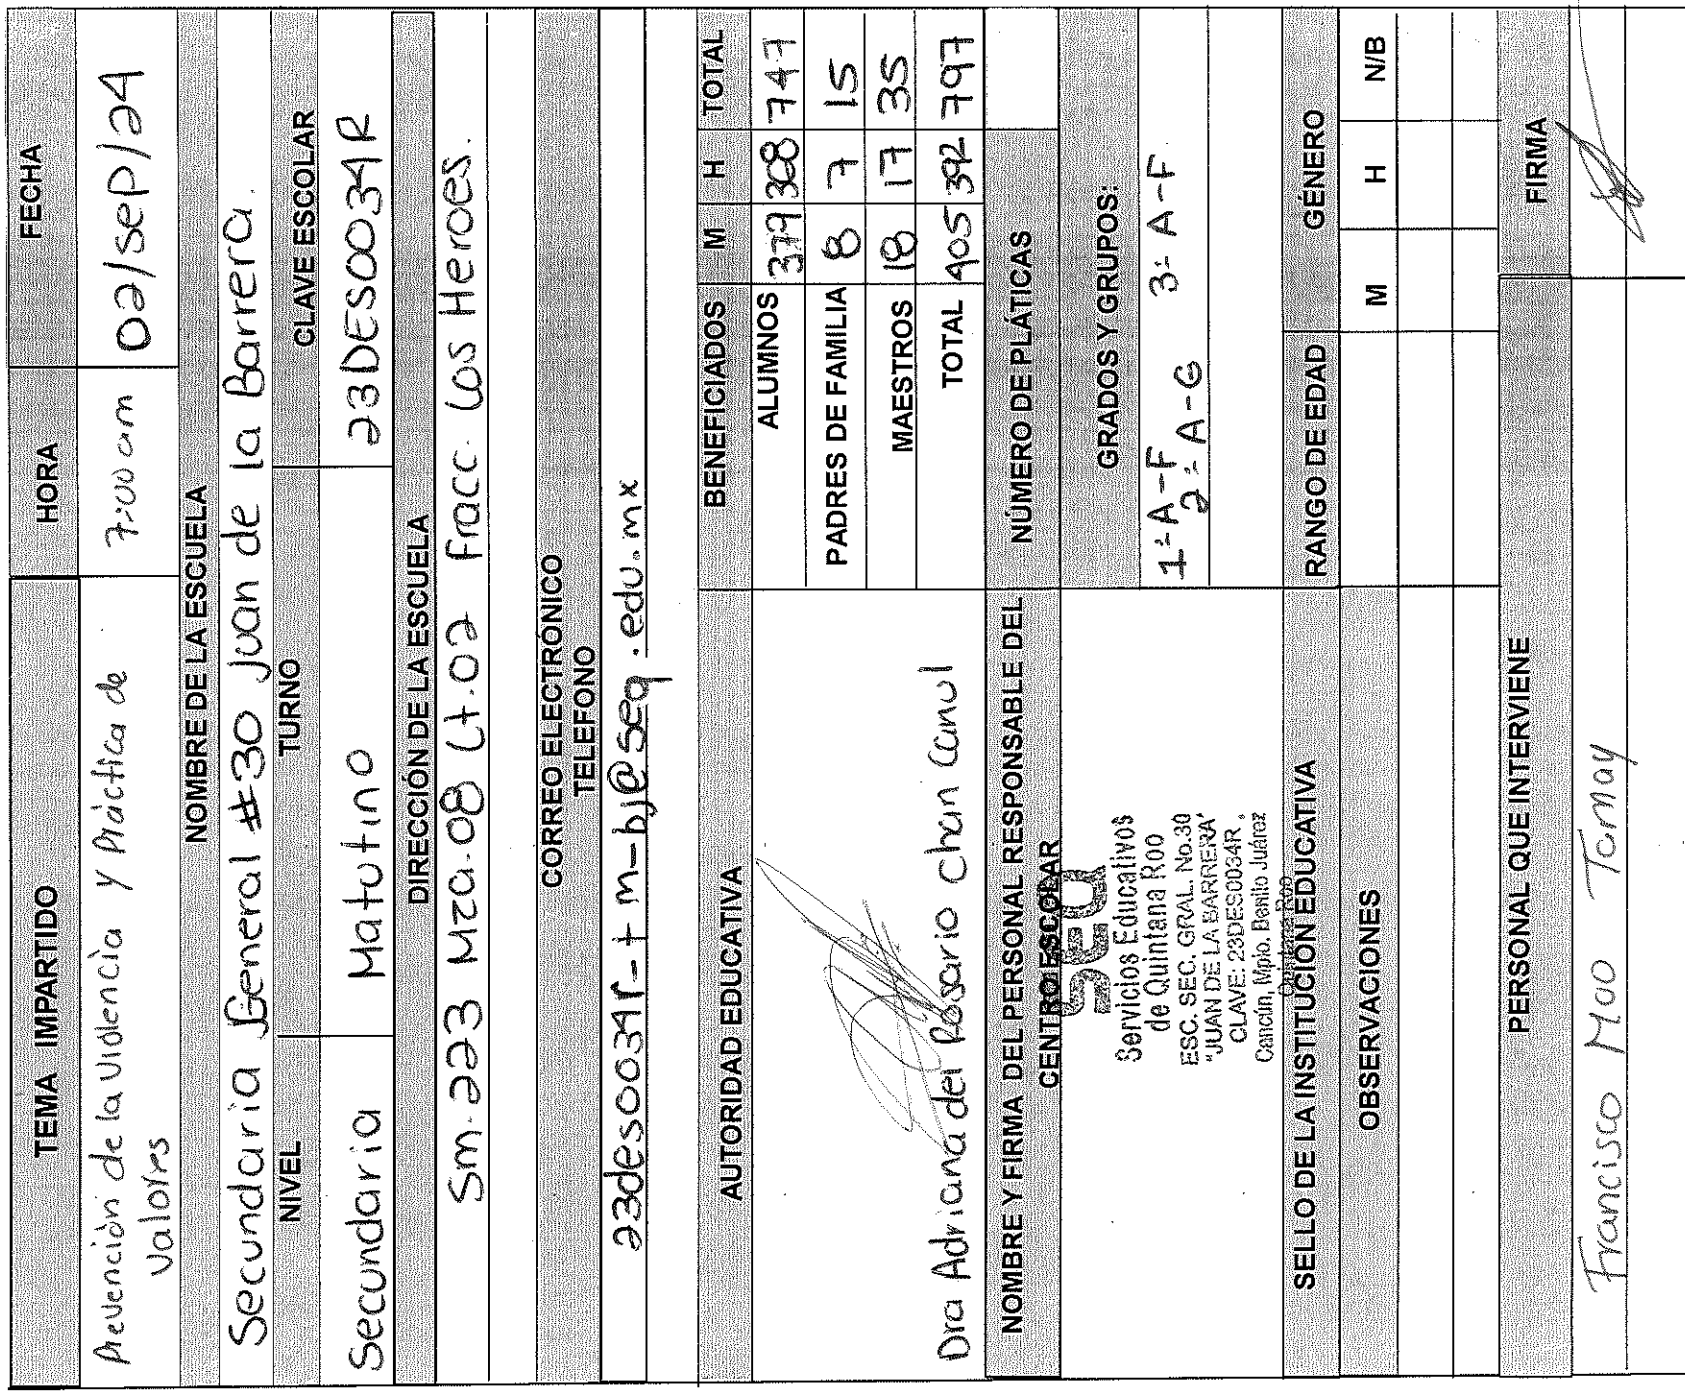 TEMA IMPARTIDO HORA FECHA
Prevención de la Violencia y Práctica de 7:00 am 02/sep/24
Valores
NOMBRE DE LA ESCUELA
Secundaria General #30 Juan de la Barrera.
NIVEL TURNO CLAVE ESCOLAR
Secundaria Matutino 23DES0034R
DIRECCIÓN DE LA ESCUELA
Sm.223 Mza.08 Lt.02 Fracc. Los Heroes.
CORREO ELECTRÓNICO
TELEFONO
23des0034r-tm-bj@seq.edu.mx
AUTORIDAD EDUCATIVA BENEFICIADOS M H TOTAL
ALUMNOS 379 368 747
PADRES DE FAMILIA 8 7 15
MAESTROS 18 17 35
TOTAL 405 392 797
Dra Adriana del Rosario Chan Canul
NOMBRE Y FIRMA DEL PERSONAL RESPONSABLE DEL
CENTRO ESCOLAR
NÚMERO DE PLÁTICAS
GRADOS Y GRUPOS:
1º A-F 3º A-F
2º A-G
seq
Servicios Educativos
de Quintana Roo
ESC. SEC. GRAL. No.30
"JUAN DE LA BARRERA"
CLAVE: 23DES0034R.
Cancún, Mpio. Benito Juárez
Quintana Roo
SELLO DE LA INSTITUCIÓN EDUCATIVA RANGO DE EDAD GÉNERO
OBSERVACIONES M H N/B
PERSONAL QUE INTERVIENE FIRMA
Francisco Moo Tamay